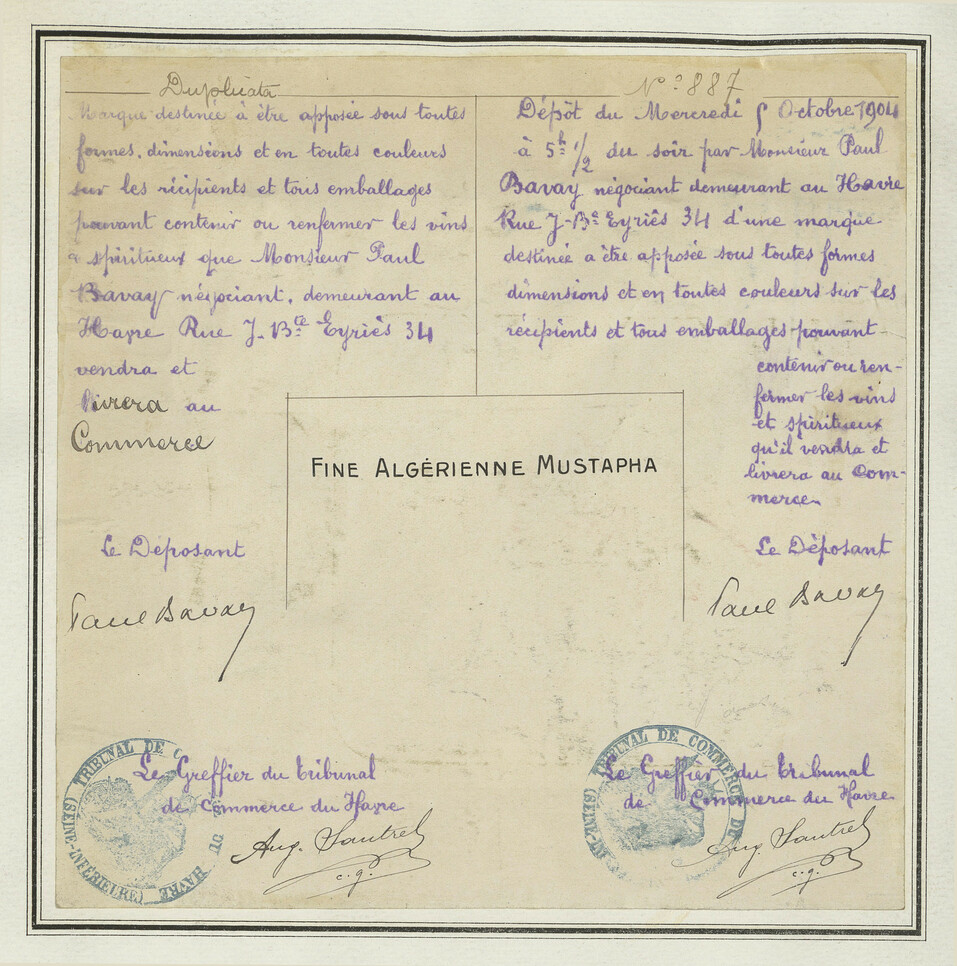 Duplicata
Marque destinée à être apposée sous toutes
formes, dimensions et en toutes couleurs
sur les récipients et tous emballages
pouvant contenir ou renfermer les vins
& spiritueux que Monsieur Paul
Bavay négociant, demeurant au
Havre Rue J-Bte Eyriès 34
vendra et
livrera au
Commerce
Le Déposant
Paul Bavay
Le Greffier du Tribunal
de Commerce du Havre
Aug. Sautrel
c.g.
TRIBUNAL DE C
DU HAVRE
(SEINE-INFÉRIEURE)
N° 887
Dépôt du Mercredi 5 Octobre 1904
à 5h 1/2 du soir par Monsieur Paul
Bavay négociant demeurant au Havre
Rue J-Bte Eyriès 34 d'une marque
destinée a être apposée sous toutes formes
dimensions et en toutes couleurs sur les
récipients et tous emballages pouvant
contenir ou ren-
fermer les vins
et spiritueux
qu'il vendra et
livrera au Com-
merce
Le Déposant
Paul Bavay
Le Greffier du Tribunal
de Commerce du Havre
Aug. Sautrel
c.g.
TRIBUNAL DE COMMERCE DU
(SEINE-IN
FINE ALGÉRIENNE MUSTAPHA